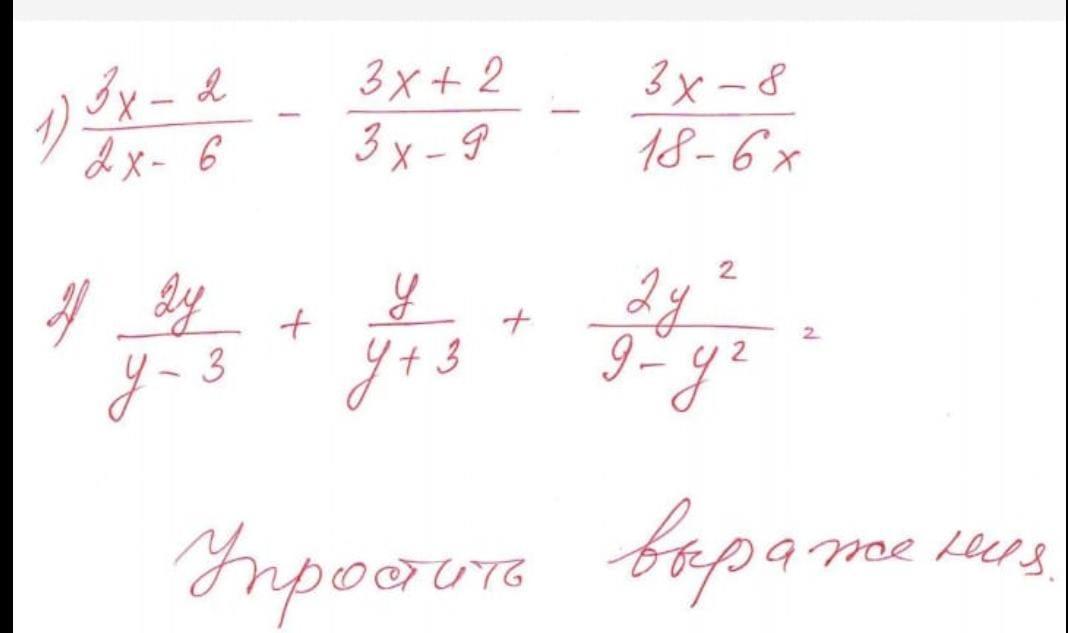 1) (3x - 2)/(2x - 6) - (3x + 2)/(3x - 9) - (3x - 8)/(18 - 6x)
2) 2y/(y - 3) + y/(y + 3) + 2y²/(9 - y²) =
Упростить выражения.